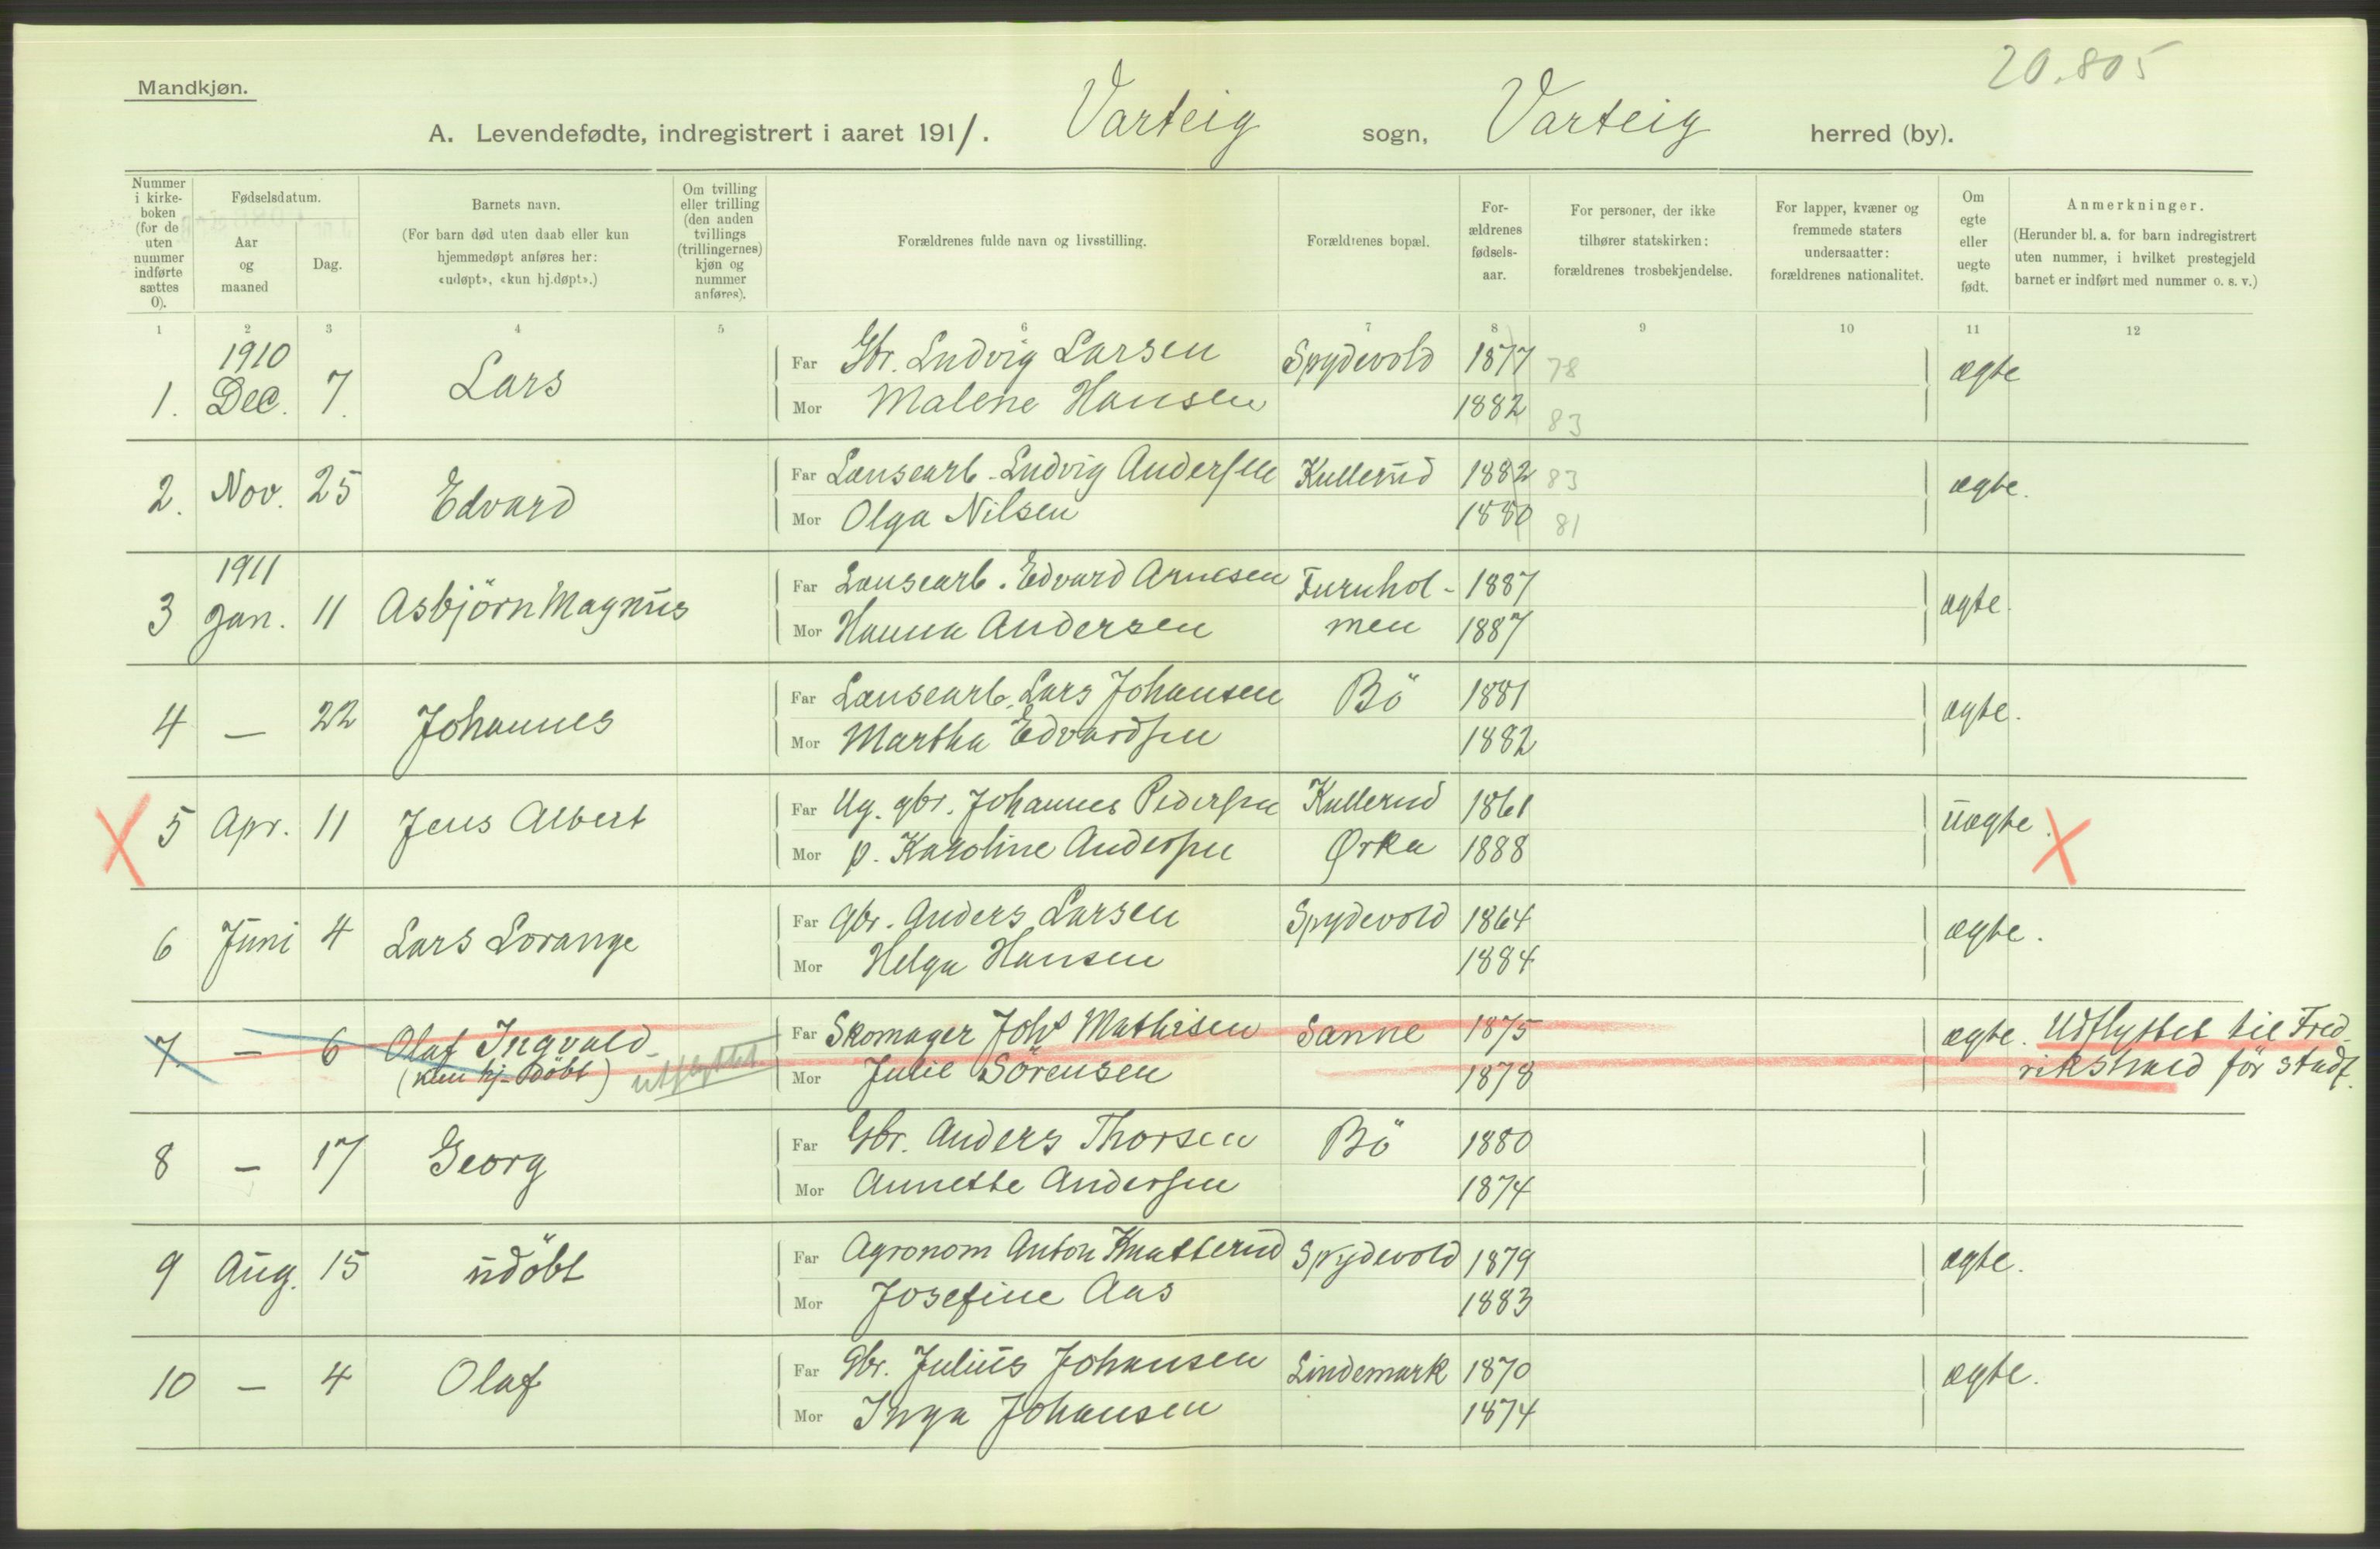 20.805
Mandkjøn.
A. Levendefødte, indregistrert i aaret 1911. Varteig sogn, Varteig herred (by).
Nummer i kirke-boken (for de uten nummer indførte sættes 0).
Fødselsdatum.
Aar og maaned
Dag.
Barnets navn.
(For barn død uten daab eller kun hjemmedøpt anføres her: «udøpt», «kun hj.døpt».)
Om tvilling eller trilling (den anden tvillings (trillingernes) kjøn og nummer anføres).
Forældrenes fulde navn og livsstilling.
Forældrenes bopæl.
For-ældrenes fødsels-aar.
For personer, der ikke tilhører statskirken: forældrenes trosbekjendelse.
For lapper, kvæner og fremmede staters undersaatter: forældrenes nationalitet.
Om egte eller uegte født.
Anmerkninger.
(Herunder bl. a. for barn indregistrert uten nummer, i hvilket prestegjeld barnet er indført med nummer o. s. v.)
1 2 3 4 5 6 7 8 9 10 11 12
1910
1. Dec. 7. Lars Far Gbr. Ludvig Larsen Spydevold 1877 78 ægte
Mor Malene Hansen 1882 83
2. Nov. 25 Edvard Far Lønsearb. Ludvig Andersen Kullerud 1882 83 ægte.
Mor Olga Nilsen 1880 81
1911
3 Jan. 11 Asbjörn Magnus Far Lønsearb. Edvard Arnesen Furuhol- 1887 ægte.
Mor Hanna Andersen men 1887
4 — 22 Johannes Far Lønsearb. Lars Johansen Bö 1881 ægte.
Mor Martha Edvardsen 1882
5 Apr. 11 Jens Albert Far Ug. gbr. Johannes Pedersen Kullerud 1861 uægte.
Mor p. Karoline Andersen Ørka 1888
6 Juni 4 Lars Lorange Far gbr. Anders Larsen Spydevold 1864 ægte.
Mor Helga Hansen 1884
7. — 6 Olaf Ingvald Far Skomager Johs Mathisen Sanne 1875 ægte. Udflyttet til Fred-
(kun hj. döbt) utflyttet Mor Julie Sörensen 1878 rikshald för stadf.
8 — 17 Georg Far Gbr. Anders Thorsen Bö 1880
Mor Annette Andersen 1874
9 Aug. 15 udöbt Far Agronom Anton Knatterud Spydevold 1879 ægte.
Mor Josefine Aas 1883
10 — 4 Olaf Far Gbr. Julius Johansen Lindemark 1870 ægte.
Mor Inga Johansen 1874